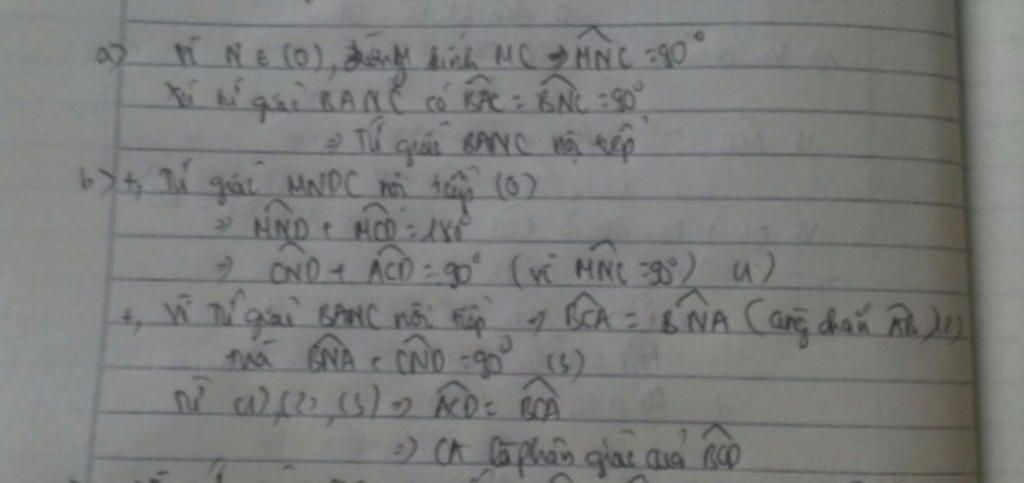 a) Vì N ∈ (O), đường kính MC ⇒ \widehat{MNC} = 90°
Xét tứ giác BANC có \widehat{BAC} = \widehat{BNC} = 90°
⇒ Tứ giác BANC nội tiếp
b) +, Tứ giác MNDC nội tiếp (O)
⇒ \widehat{MND} + \widehat{MCD} = 180°
⇒ \widehat{CND} + \widehat{ACD} = 90° (vì \widehat{MNC} = 90°) (1)
+, Vì Tứ giác BANC nội tiếp ⇒ \widehat{BCA} = \widehat{BNA} (cùng chắn \widehat{AB}) (2)
mà \widehat{BNA} + \widehat{CND} = 90° (3)
Từ (1), (2), (3) ⇒ \widehat{ACD} = \widehat{BCA}
⇒ CA là phân giác của \widehat{BCD}